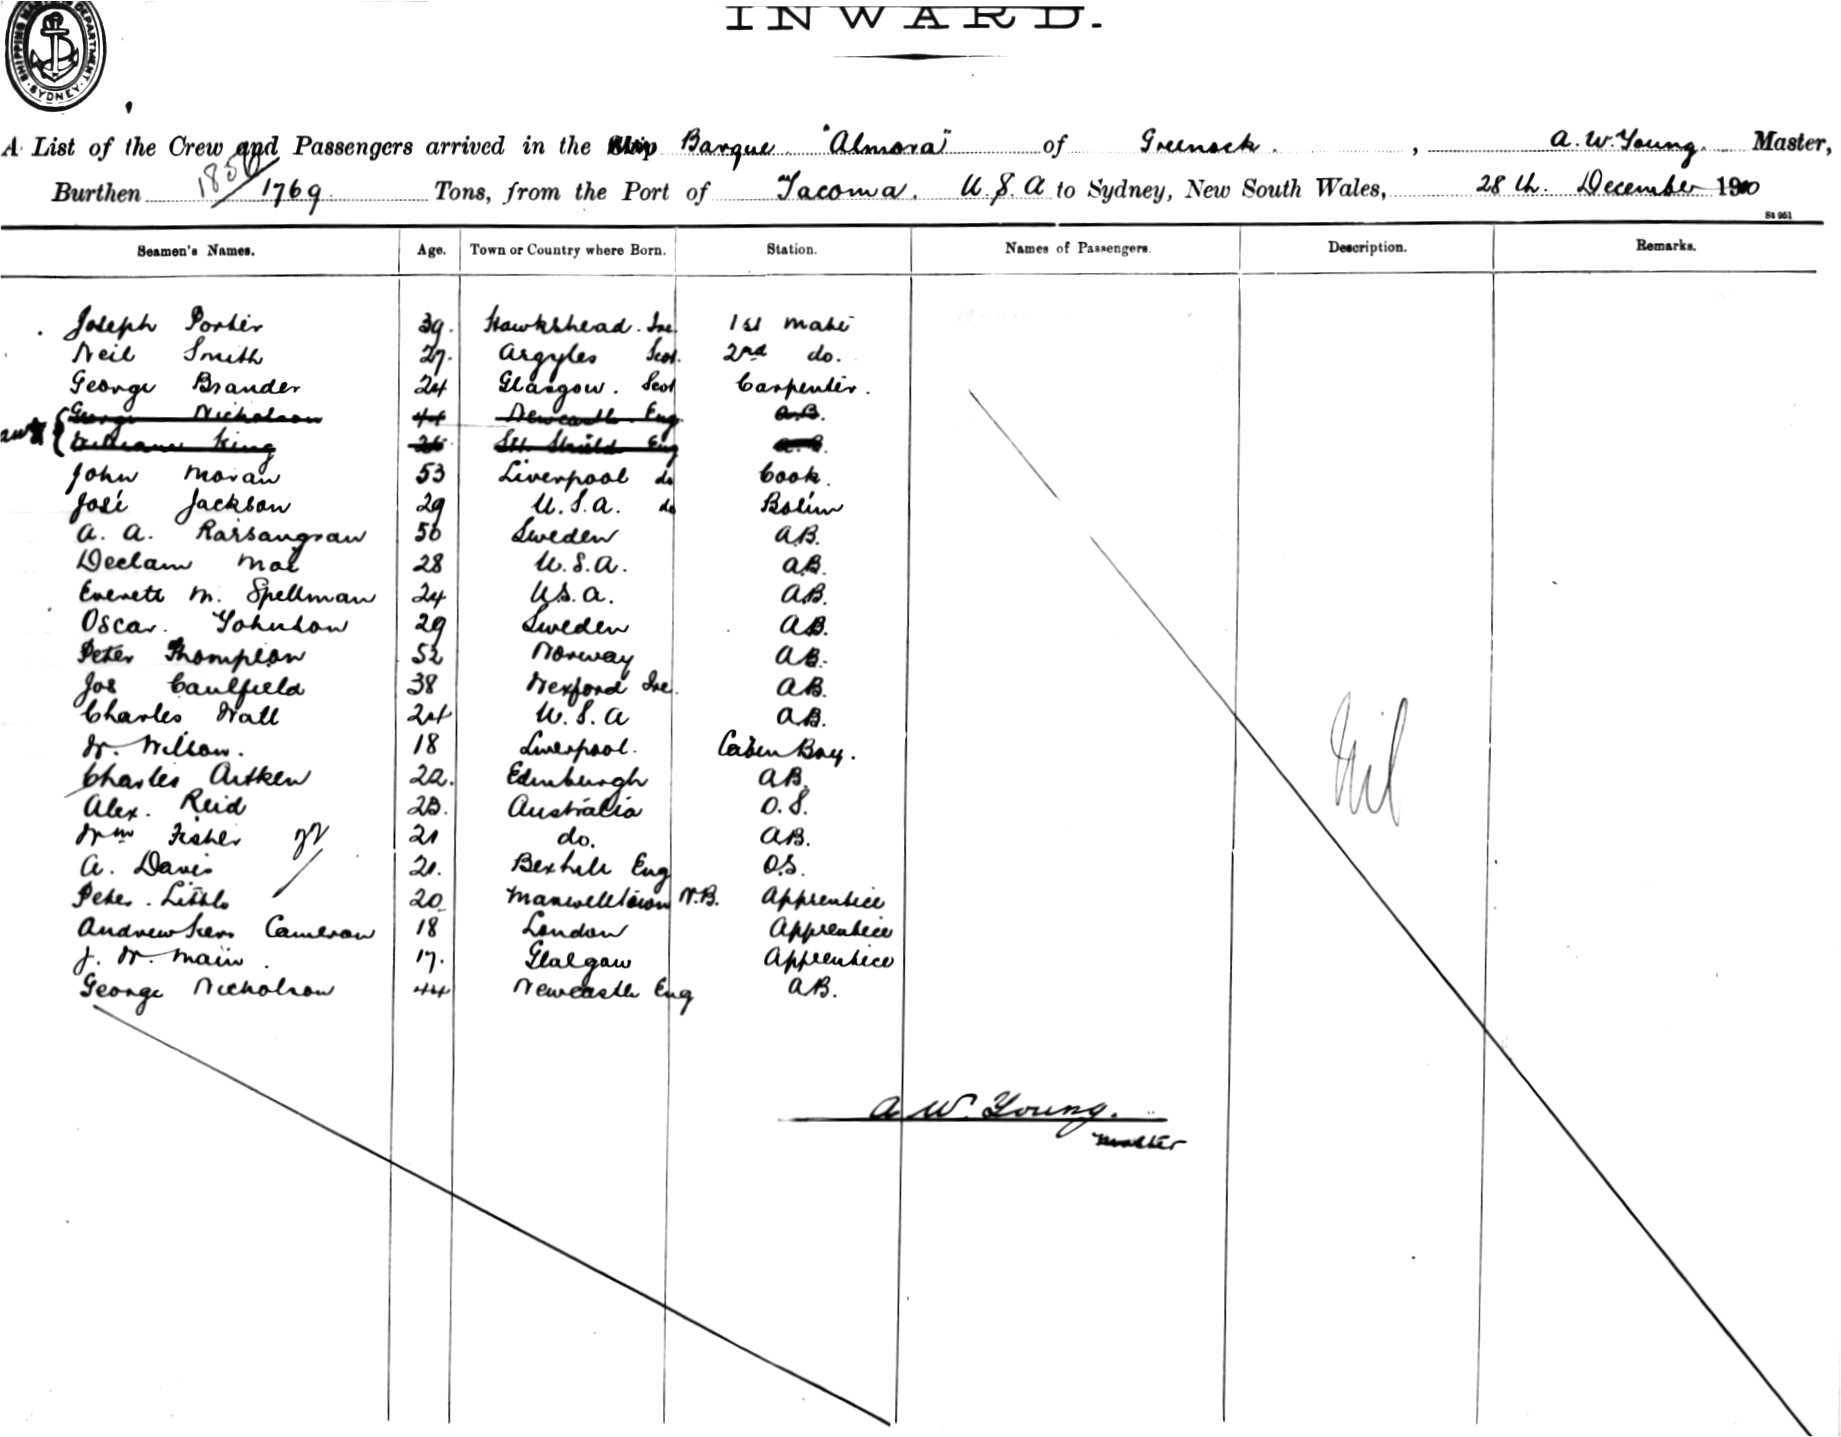 SHIPPING MASTERS DEPARTMENT SYDNEY
INWARD.
A List of the Crew and Passengers arrived in the Ship Barque "Almora" of Greenock. , A. W. Young. Master,
Burthen 1850/1769 Tons, from the Port of Tacoma. U.S.A to Sydney, New South Wales, 28th. December 1900
St 951
Seamen's Names. Age. Town or Country where Born. Station. Names of Passengers. Description. Remarks.
Joseph Porter 39. Hawkshead. Ire. 1st mate
Neil Smith 27. Argyles Scot. 2nd do.
George Brander 24 Glasgow. Scot Carpenter.
George Nicholson 44 Newcastle Eng. A.B.
William King 26 Sth Shield Eng A.B.
John Moran 53 Liverpool do Cook.
José Jackson 29 U.S.A. do Bosun
A. A. 50 Sweden AB.
Declam Mac 28 U.S.A. AB.
Everett M. Spellman 24 U.S.A. AB.
Oscar. Yohnson 29 Sweden AB.
Peter Thompson 52 Norway AB.
Jos Caulfield 38 Wexford Ire. AB.
Charles Wall 24 U.S.A AB.
W. Wilson. 18 Liverpool. Cabin Boy.
Charles Aitken 22. Edinburgh AB.
Alex. Reid 23. Australia O.S.
Wm Fisher 21 do. AB.
A. Davis 21. Bexhill Eng O.S.
Peter. Little 20 Maxwelltown N.B. Apprentice
Andrew Kerr Cameron 18 London Apprentice
J. W. Main. 17. Glasgow Apprentice
George Nicholson 44 Newcastle Eng AB.
Nil
A W. Young.
Master